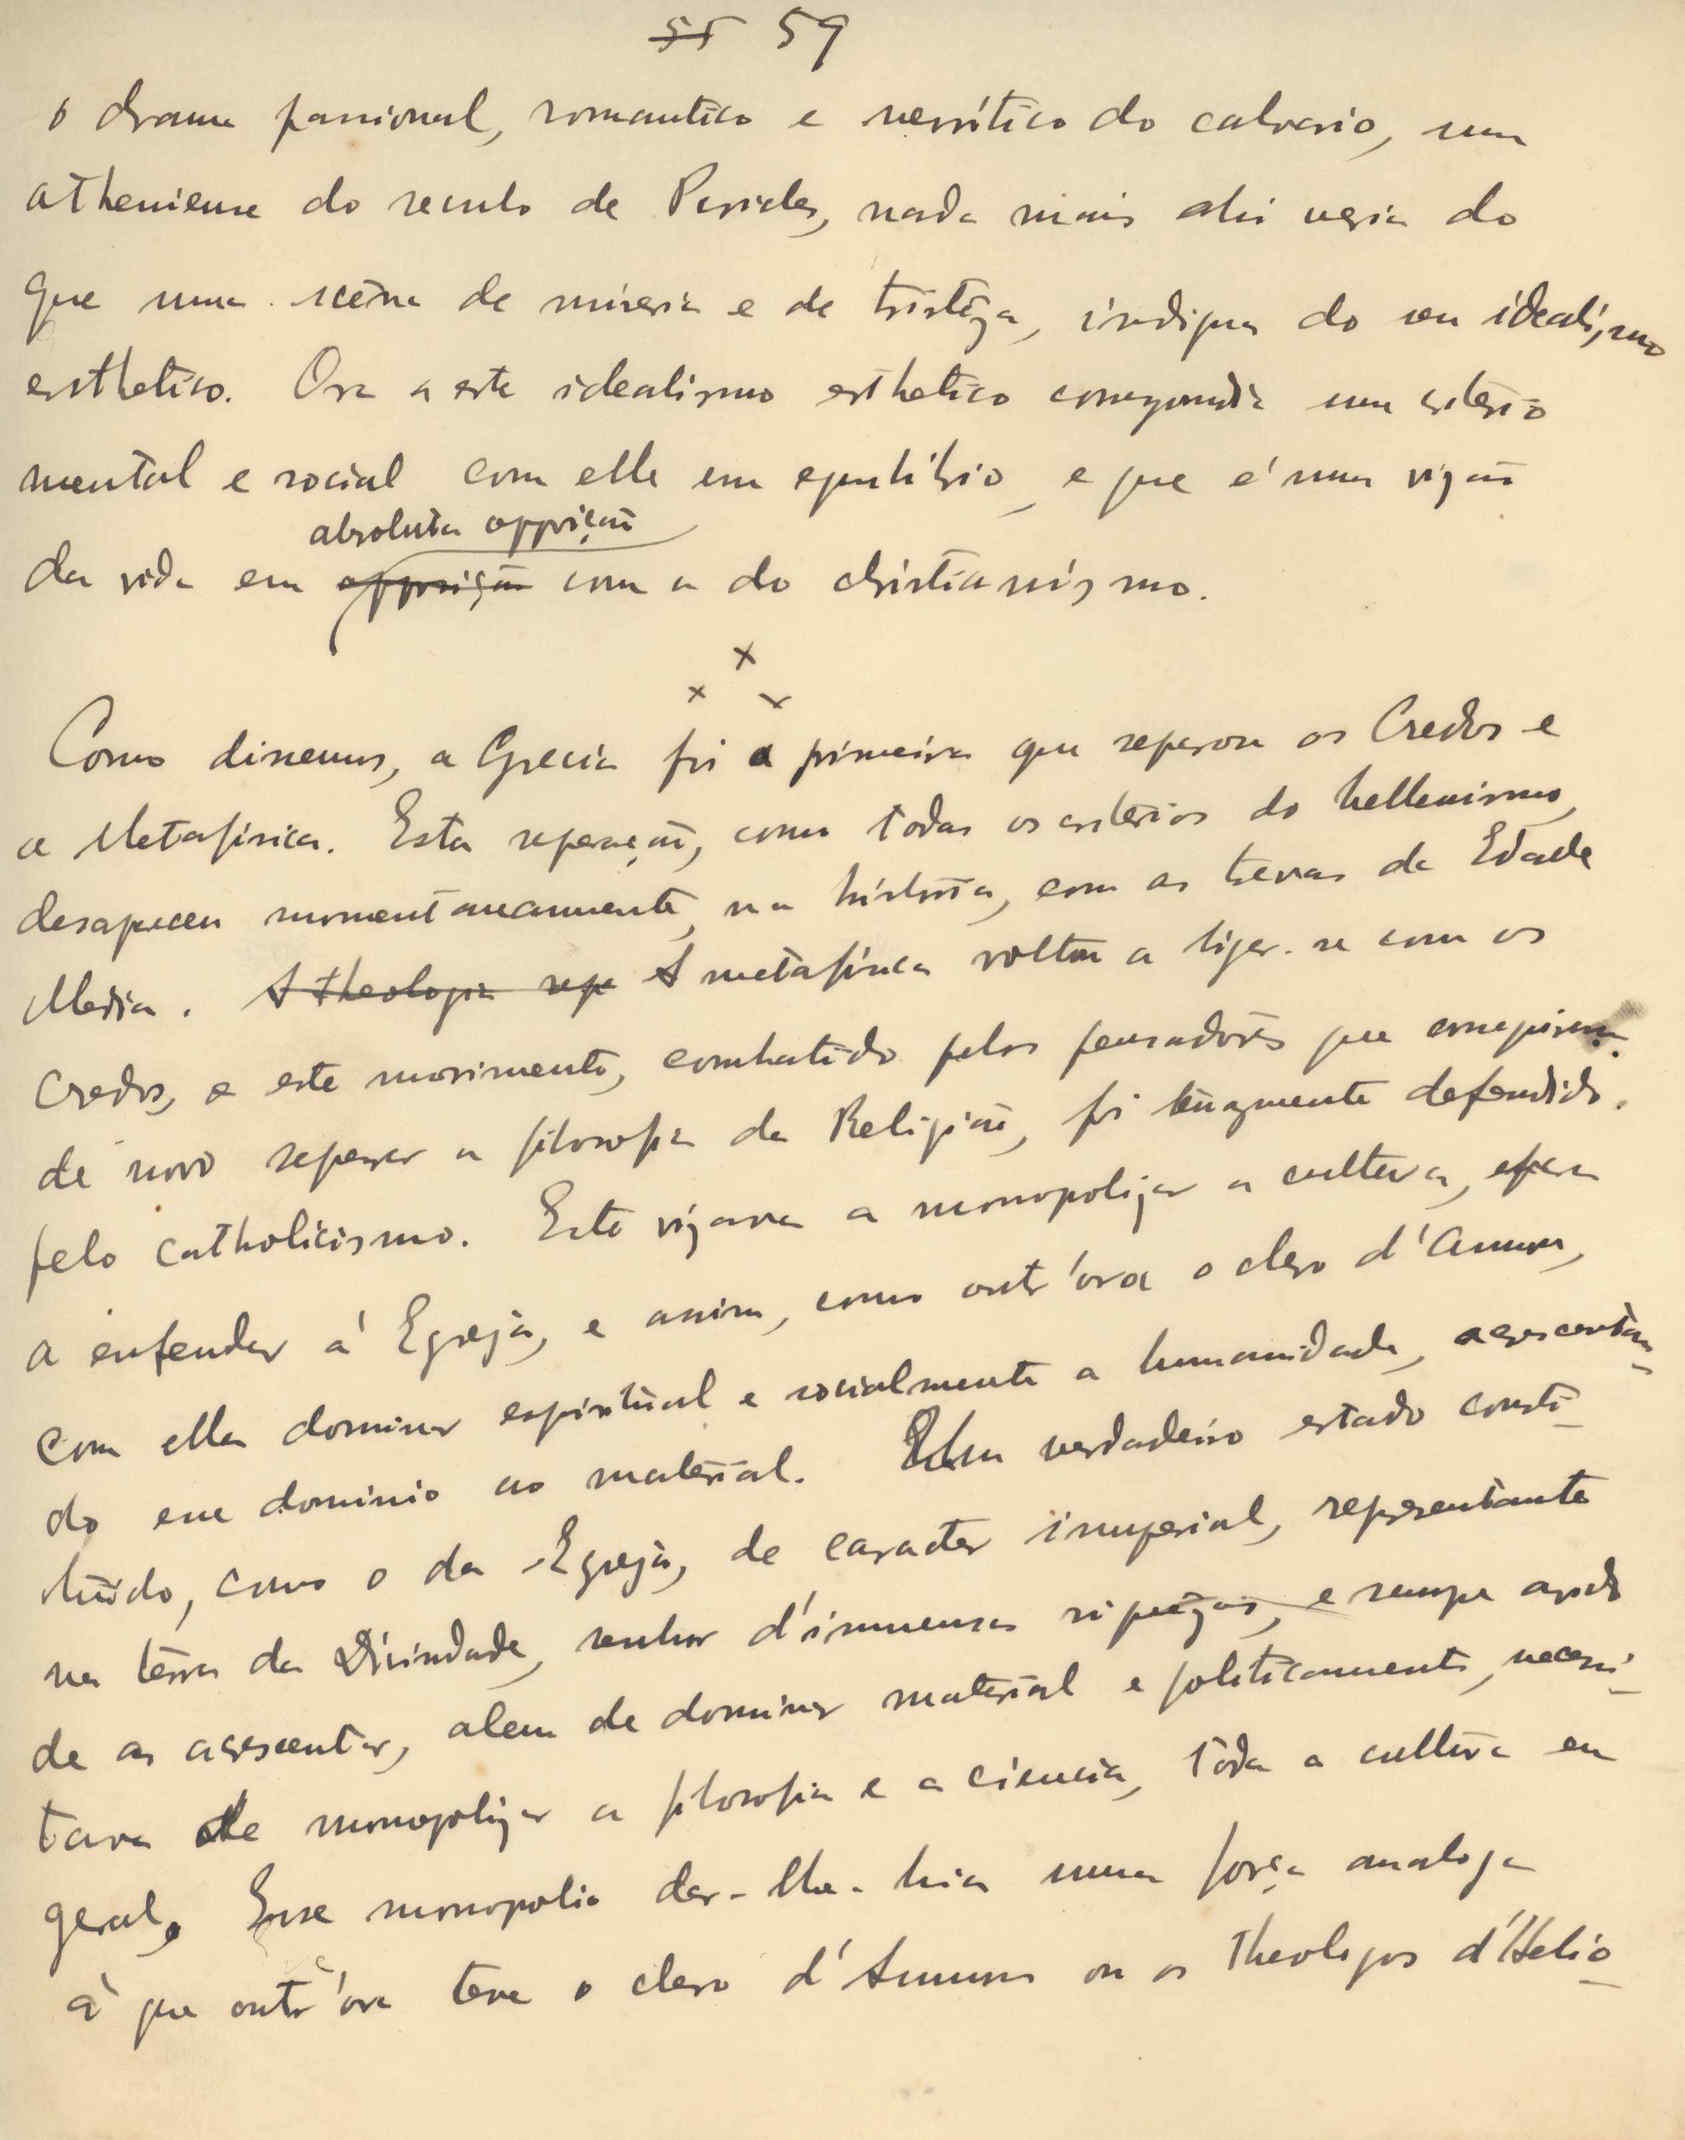 55 59
o drama passional, romantico e nevritico do calvario, um
atheniense do seculo de Pericles, nada mais ahi veria do
que uma scêna de miseria e de tristêza, indigna do seu idealismo
esthetico. Ora a este idealismo esthetico correspondia um criterio
mental e social com elle em equilibrio, e que é uma vizão
absoluta opposição
da vida em opposição com a do christianismo.
x
x x
Como dissemos, a Grecia foi a primeira que separou os Credos e
a Metafisica. Esta separação, como todos os criterios do hellenismo,
desapareceu momentaneamente, na historia, com as trevas da Edade
Media. A theologia sepa A metafisica voltou a ligar-se com os
Credos, e este movimento, combatido pelos pensadores que
de novo separar a filosofia da Religião, foi tenazmente defendido
pelo catholicismo. Este vizava a monopolizar a cultura, e para
a enfeudar á Egreja, e assim, como outr'ora o clero d'Ammon,
com ella dominar espiritual e socialmente a humanidade, acrescentan-
do esse dominio ao material. Um verdadeiro estado consti-
tuido, como o da Egreja, de caracter imperial, representante
na terra da Divindade, senhor d'immensas riquêzas, e sempre avido
de as acrescentar, alem de dominar material e politicamente, necessi-
tava de monopolizar a filosofia e a ciencia, toda a cultura em
geral. Esse monopolio dar-lhe-hia uma força analoga
à que outr'ora teve o clero d'Ammon ou os Theologos d'Helio-